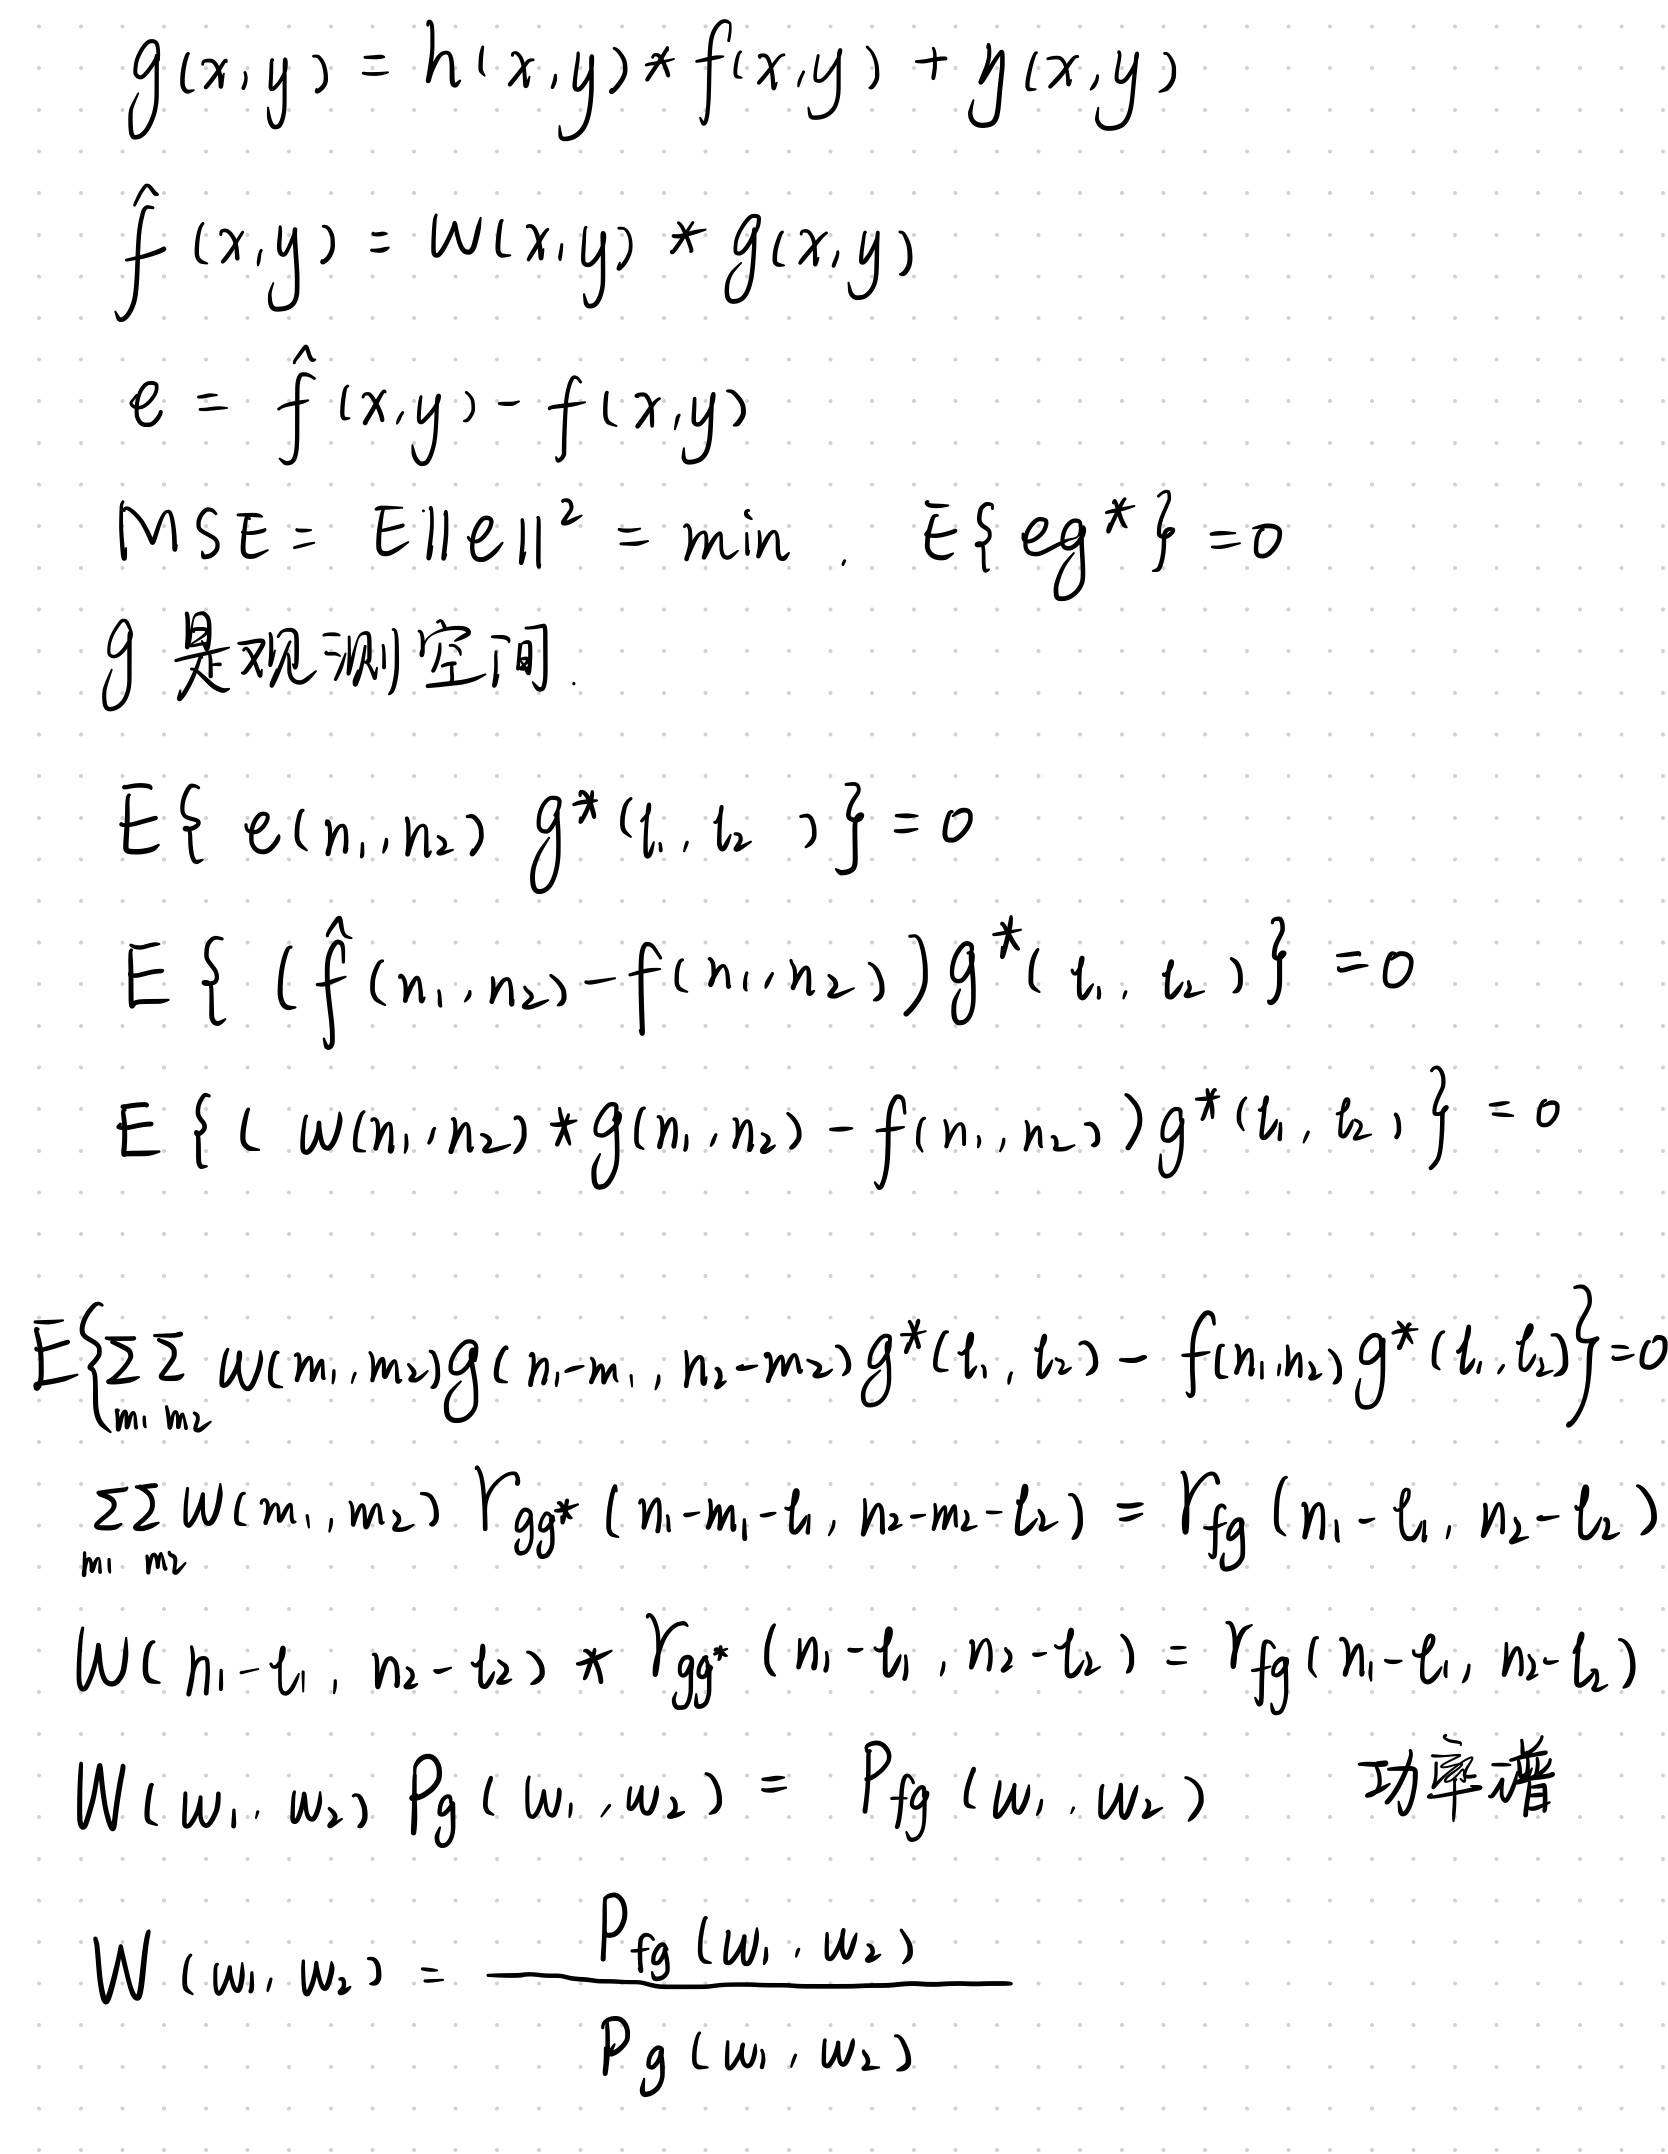 g(x,y) = h(x,y)*f(x,y) + η(x,y)
f̂(x,y) = w(x,y) * g(x,y)
e = f̂(x,y) - f(x,y)
MSE = E||e||² = min . E{eg*} = 0
g 是观测空间.
E{ e(n₁,n₂) g*(l₁,l₂) } = 0
E{ (f̂(n₁,n₂) - f(n₁,n₂)) g*(l₁,l₂) } = 0
E{ ( w(n₁,n₂)*g(n₁,n₂) - f(n₁,n₂) ) g*(l₁,l₂) } = 0
E{ Σ_m₁ Σ_m₂ w(m₁,m₂) g(n₁-m₁, n₂-m₂) g*(l₁,l₂) - f(n₁,n₂) g*(l₁,l₂) } = 0
Σ_m₁ Σ_m₂ w(m₁,m₂) r_gg* (n₁-m₁-l₁, n₂-m₂-l₂) = r_fg (n₁-l₁, n₂-l₂)
w(n₁-l₁, n₂-l₂) * r_gg* (n₁-l₁, n₂-l₂) = r_fg (n₁-l₁, n₂-l₂)
W(w₁,w₂) P_g (w₁,w₂) = P_fg (w₁,w₂) 功率谱
W(w₁,w₂) = P_fg (w₁,w₂) / P_g (w₁,w₂)